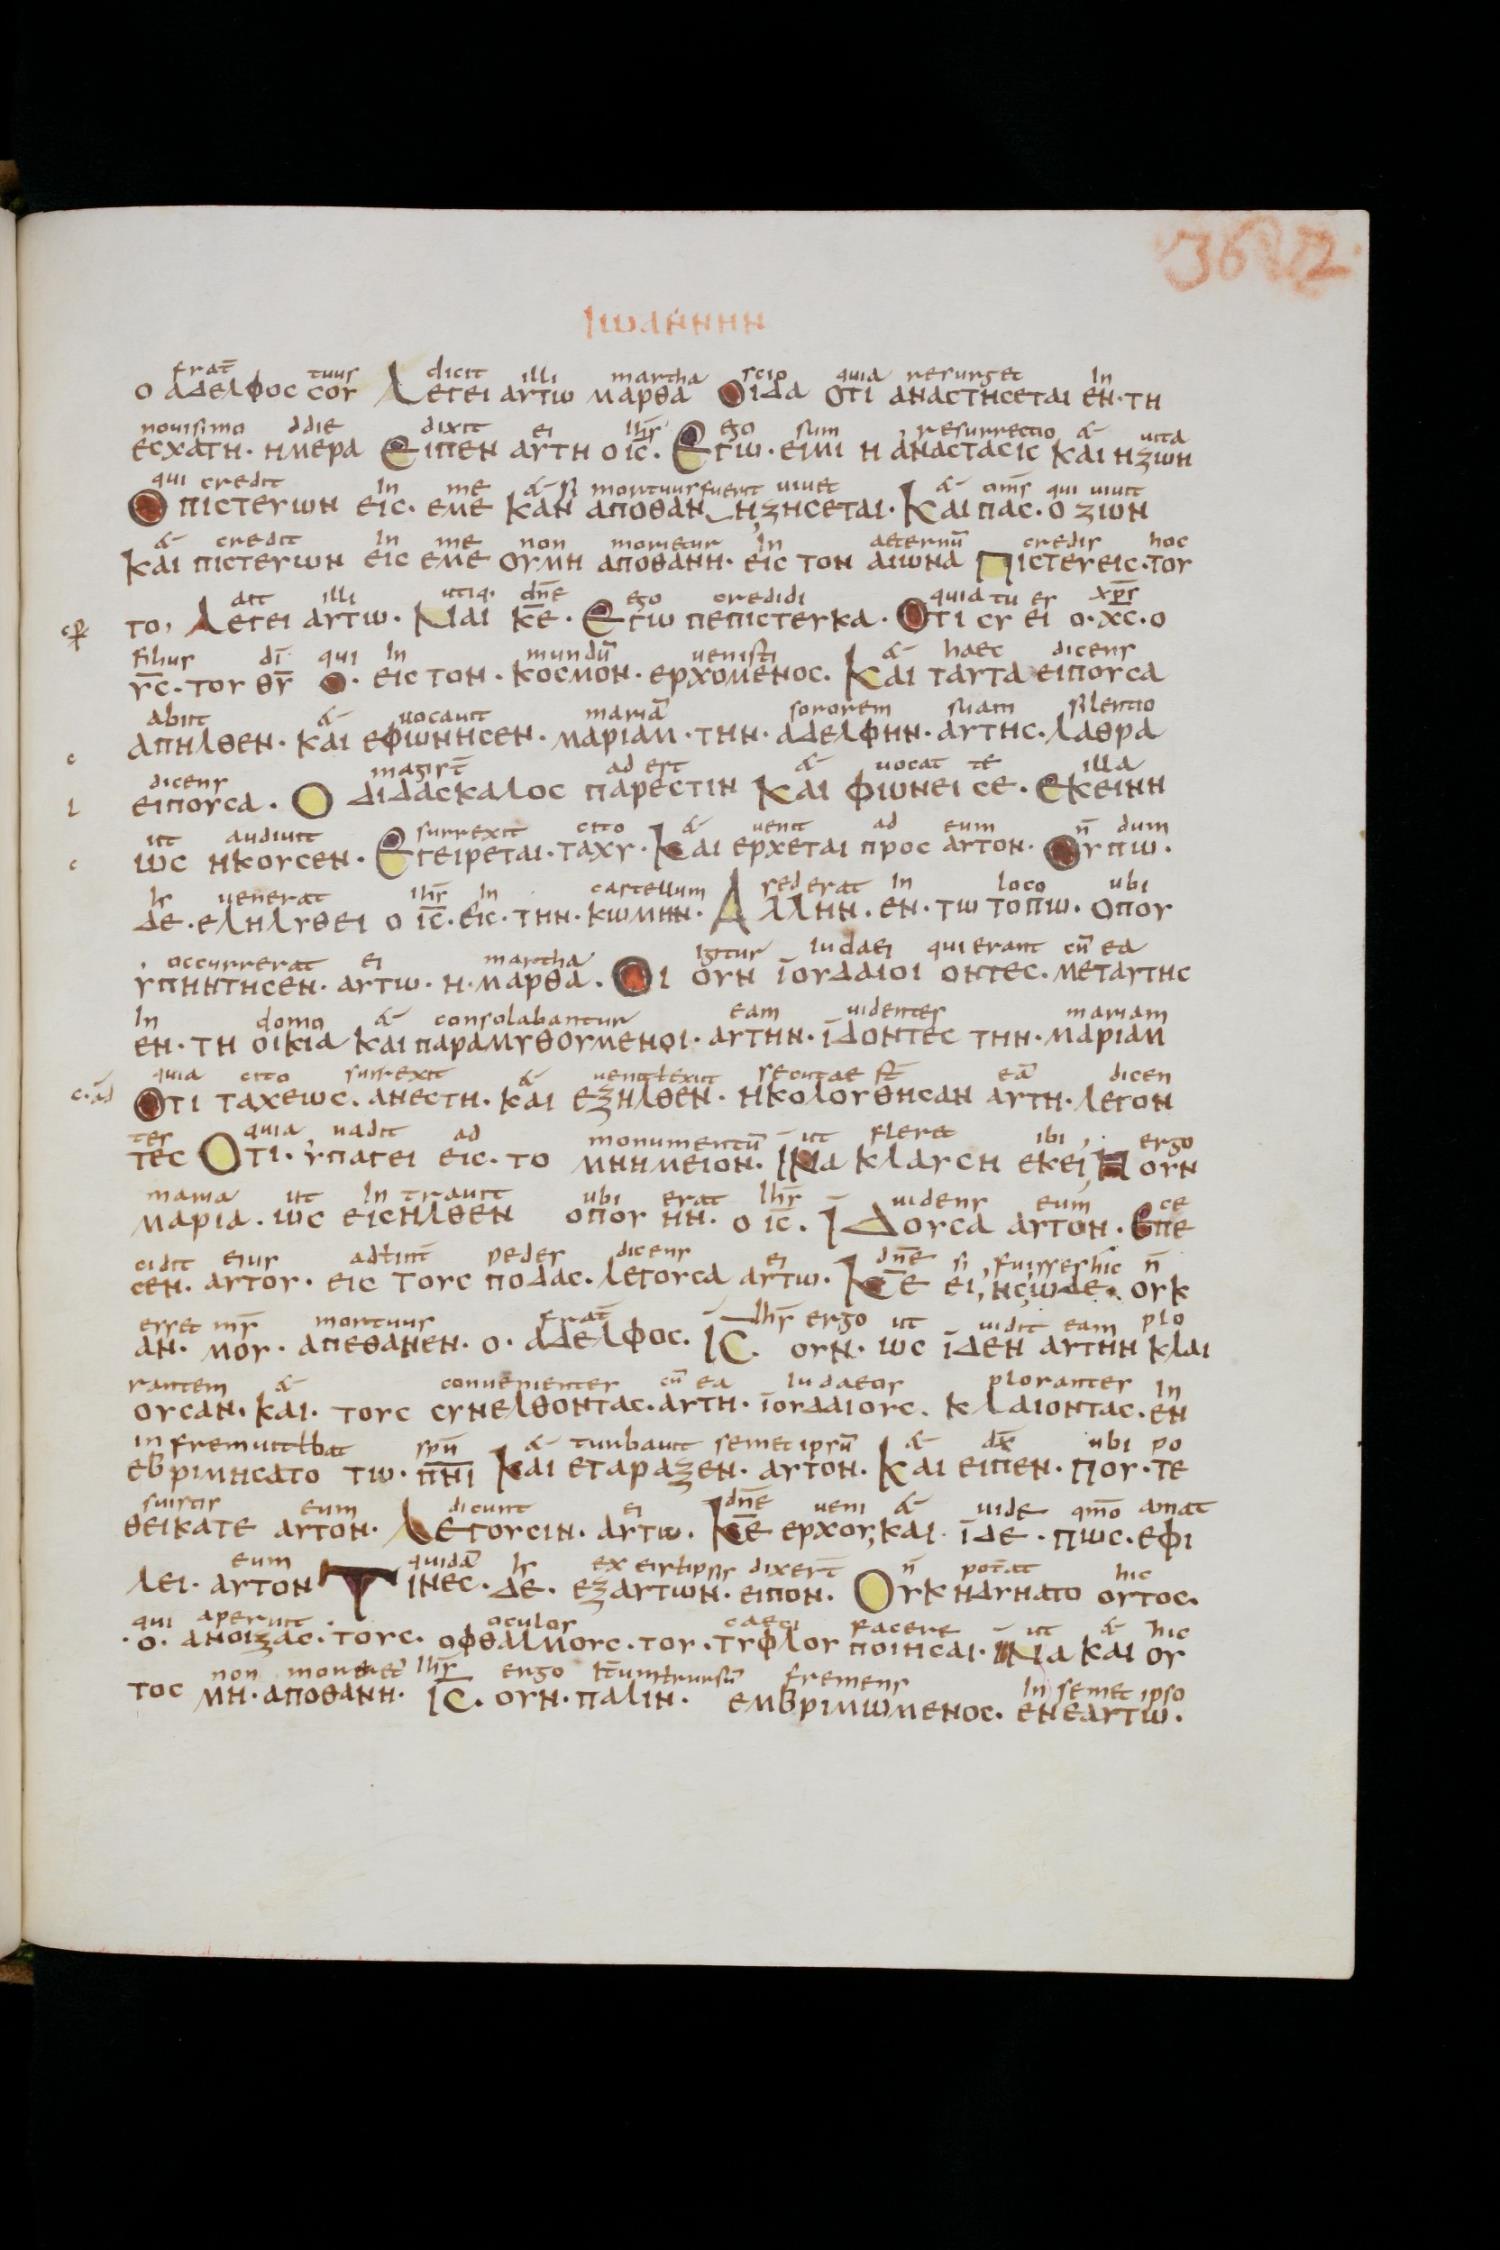 3672
ΙωΑΝΝΗΝ
frat̄ tuus dicit illi martha scio quia resurget In
Ο ΑΔΕΛΦΟC CΟΥ ΛΕΓΕΙ ΑΥΤω ΜΑΡΘΑ ΟΙΔΑ ΟΤΙ ΑΝΑCΤΗCΕΤΑΙ ΕΝ·ΤΗ
nouisimo ddie dixit ei ih̄s ego sum resurrectio & uita
ΕCΧΑΤΗ· ΗΜΕΡΑ ΕΙΠΕΝ ΑΥΤΗ Ο ΙC̄· ΕΓω·ΕΙΜΙ Η ΑΝΑCΤΑCΙC ΚΑΙ Η ΖωΗ
qui credit In me & si mortuus fuerit uiuet & om̄s qui uiuit
Ο ΠΙCΤΕΥωΝ ΕΙC· ΕΜΕ ΚΑΝ ΑΠΟΘΑΝΗ, ΖΗCΕΤΑΙ· ΚΑΙ ΠΑC· Ο ΖωΝ
& credit In me non morietur In aeternū credis hoc
ΚΑΙ ΠΙCΤΕΥωΝ ΕΙC ΕΜΕ ΟΥΜΗ ΑΠΟΘΑΝΗ· ΕΙC ΤΟΝ ΑΙωΝΑ ΠΙCΤΕΥΕΙC·ΤΟΥ
ait illi utiq· dn̄e ego credidi quia tu es xp̄s
ΤΟ, ΛΕΓΕΙ ΑΥΤω· ΝΑΙ Κ̄Ε· ΕΓω ΠΕΠΙCΤΕΥΚΑ· ΟΤΙ CΥ ΕΙ Ο·ΧC·Ο
filius dī qui In mundū uenisti & haec dicens
ῩC·ΤΟΥ ΘῩ Ο· ΕΙC ΤΟΝ· ΚΟCΜΟΝ· ΕΡΧΟΜΕΝΟC· ΚΑΙ ΤΑΥΤΑ ΕΙΠΟΥCΑ
abiit & uocauit mariā sororem suam silentio
ΑΠΗΛΘΕΝ· ΚΑΙ ΕΦωΝΗCΕΝ· ΜΑΡΙΑΜ·ΤΗΝ· ΑΔΕΛΦΗΝ·ΑΥΤΗC·ΛΑΘΡΑ
dicens magist̄ ad est & uocat te illa
ΕΙΠΟΥCΑ· Ο ΔΙΔΑCΚΑΛΟC ΠΑΡΕCΤΙΝ ΚΑΙ ΦωΝΕΙ CΕ· ΕΚΕΙΝΗ
ut audiuit surrexit cito & uenit ad eum n̄ dum
ωC ΗΚΟΥCΕΝ· ΕΓΕΙΡΕΤΑΙ·ΤΑΧΥ·ΚΑΙ ΕΡΧΕΤΑΙ ΠΡΟC ΑΥΤΟΝ· ΟΥΠω·
uenerat ih̄s In castellum sed erat In loco ubi
ΔΕ·ΕΛΗΛΥΘΕΙ Ο ΙC̄·ΕΙC·ΤΗΝ·ΚωΜΗΝ· ΑΛΛΗΝ·ΕΝ·Τω ΤΟΠω· ΟΠΟΥ
occurrerat ei martha igitur iudaei qui erant cū ea
ΥΠΗΝΤΗCΕΝ· ΑΥΤω·Η·ΜΑΡΘΑ· ΟΙ ΟΥΝ ΪΟΥΔΑΙΟΙ ΟΝΤΕC·ΜΕΤΑΥΤΗC
In domo & consolabantur eam uidentes mariam
ΕΝ·ΤΗ ΟΙΚΙΑ ΚΑΙ ΠΑΡΑΜΥΘΟΥΜΕΝΟΙ·ΑΥΤΗΝ·ΪΔΟΝΤΕC ΤΗΝ·ΜΑΡΙΑΜ
quia cito surrexit & uenit ł exiit secutae st̄ eā dicen
ΟΤΙ ΤΑΧΕωC·ΑΝΕCΤΗ·ΚΑΙ ΕΞΗΛΘΕΝ· ΗΚΟΛΟΥΘΗCΑΝ ΑΥΤΗ·ΛΕΓΟΝ
tes quia uadit ad monumentū ut fleret ibi ergo
ΤΕC ΟΤΙ·ΥΠΑΓΕΙ ΕΙC·ΤΟ ΜΗΗΜΕΙΟΝ·ΙΝΑ ΚΛΑΥCΗ ΕΚΕΙ, Η ΟΥΝ
maria ut Intrauit ubi erat ih̄s uidens eum ce
ΜΑΡΙΑ·ωC ΕΙCΗΛΘΕΝ ΟΠΟΥ ΗΝ·Ο ΙC̄· ΙΔΟΥCΑ ΑΥΤΟΝ·ΕΠΕ
cidit eius ad pedes dicens ei dn̄e si fuisses hic n̄
CΕΝ·ΑΥΤΟΥ·ΕΙC ΤΟΥC ΠΟΔΑC·ΛΕΓΟΥCΑ ΑΥΤω·Κ̄Ε ΕΙ, ΗC, ωΔΕ· ΟΥΚ
esset mortuus frat̄ ih̄s ergo ut uidit eam plo
ΑΝ·ΜΟΥ·ΑΠΕΘΑΝΕΝ·Ο·ΑΔΕΛΦΟC· ΙC̄· ΟΥΝ·ωC ΪΔΕΝ ΑΥΤΗΝ ΚΛΑΙ
rantem & conuenientes cū ea iudaeos plorantes In
ΟΥCΑΝ·ΚΑΙ·ΤΟΥC CΥΝΕΛΘΟΝΤΑC·ΑΥΤΗ·ΪΟΥΔΑΙΟΥC· ΚΛΑΙΟΝΤΑC·ΕΝ
infremuit ł bat sp̄u & turbauit semet ipsū & dx̄ ubi po
ΕΒΡΙΜΗCΑΤΟ Τω·ΠΝ̄Ι ΚΑΙ ΕΤΑΡΑΞΕΝ·ΑΥΤΟΝ·ΚΑΙ ΕΙΠΕΝ·ΠΟΥ·ΤΕ
suistis eum dicunt ei dn̄e ueni & uide qm̄o amat
ΘΕΙΚΑΤΕ ΑΥΤΟΝ· ΛΕΓΟΥCΙΝ·ΑΥΤω·Κ̄Ε ΕΡΧΟΥ, ΚΑΙ·ΪΔΕ·ΠωC·ΕΦΙ
eum quidā ex eis ł ipsis dixer̄t n̄ potat hic
ΛΕΙ·ΑΥΤΟΝ ΤΙΝΕC·ΔΕ·ΕΞΑΥΤωΝ·ΕΙΠΟΝ· ΟΥΚ ΗΔΥΝΑΤΟ ΟΥΤΟC·
qui aperuit oculos caeci facere ut & hic
·Ο·ΑΝΟΙΞΑC·ΤΟΥC·ΟΦΘΑΛΜΟΥC·ΤΟΥ·ΤΥΦΛΟΥ ΠΟΙΗCΑΙ·ΙΝΑ ΚΑΙ ΟΥ
non ih̄s ergo fremens In semet ipso
ΤΟC ΜΗ·ΑΠΟΘΑΝΗ· ΙC̄·ΟΥΝ·ΠΑΛΙΝ· ΕΜΒΡΙΜωΜΕΝΟC·ΕΝΕΑΥΤω·